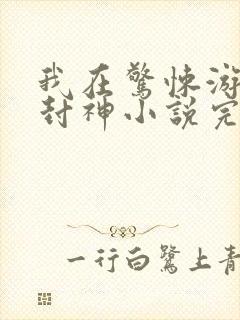 我在驚悚游
封神小說完
一行白鷺上青